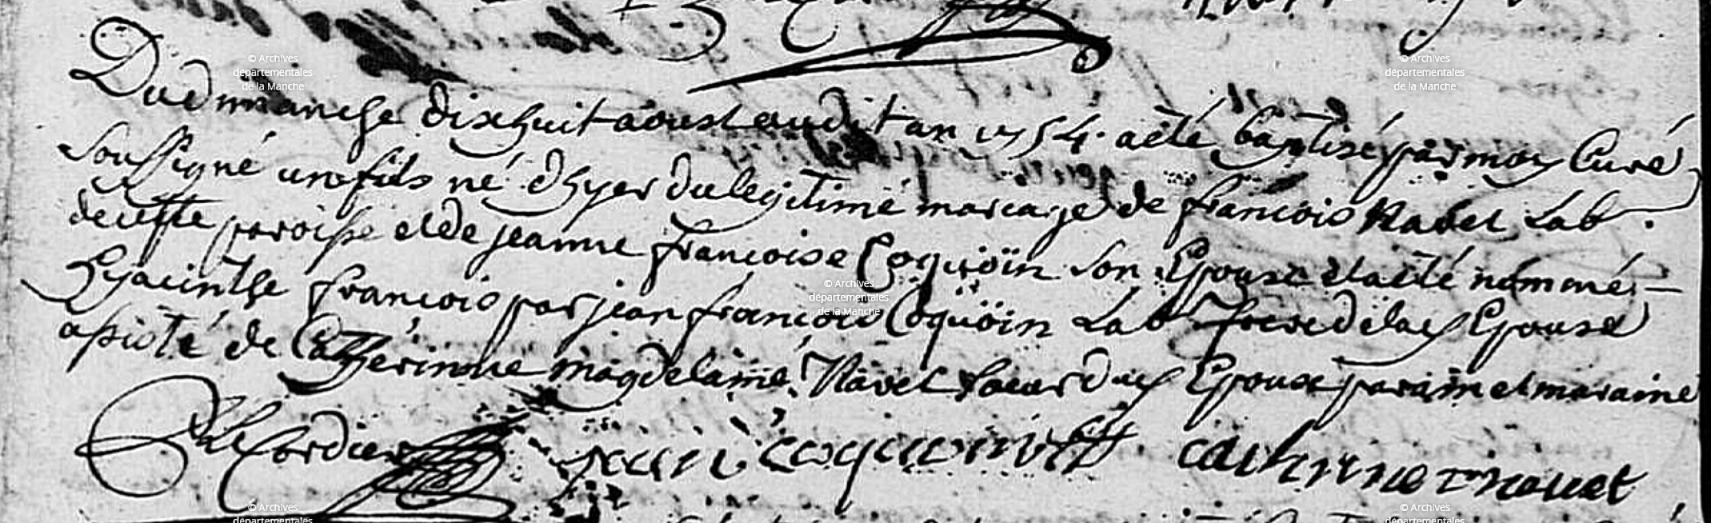 Du dimanche dixhuit aoust audit an 1754. a été baptisé par moy Curé
soussigné un fils né d'hyer du legitime mariage de francois Navet Lab.
de cette paroisse et de jeanne francoise Coquoïn son Epouse et a été nommé
hyacinthe francois par jean francois Coquoïn Lab frere de lad Epouse
assisté de Catherinne magdelaine Navet soeur dud Epoux parain et maraine
Le Cordier jean coquoin catherinne navet
© Archives
départementales
de la Manche
© Archives
départementales
de la Manche
© Archives
départementales
de la Manche
© Archives
départementales
© Archives
départementales